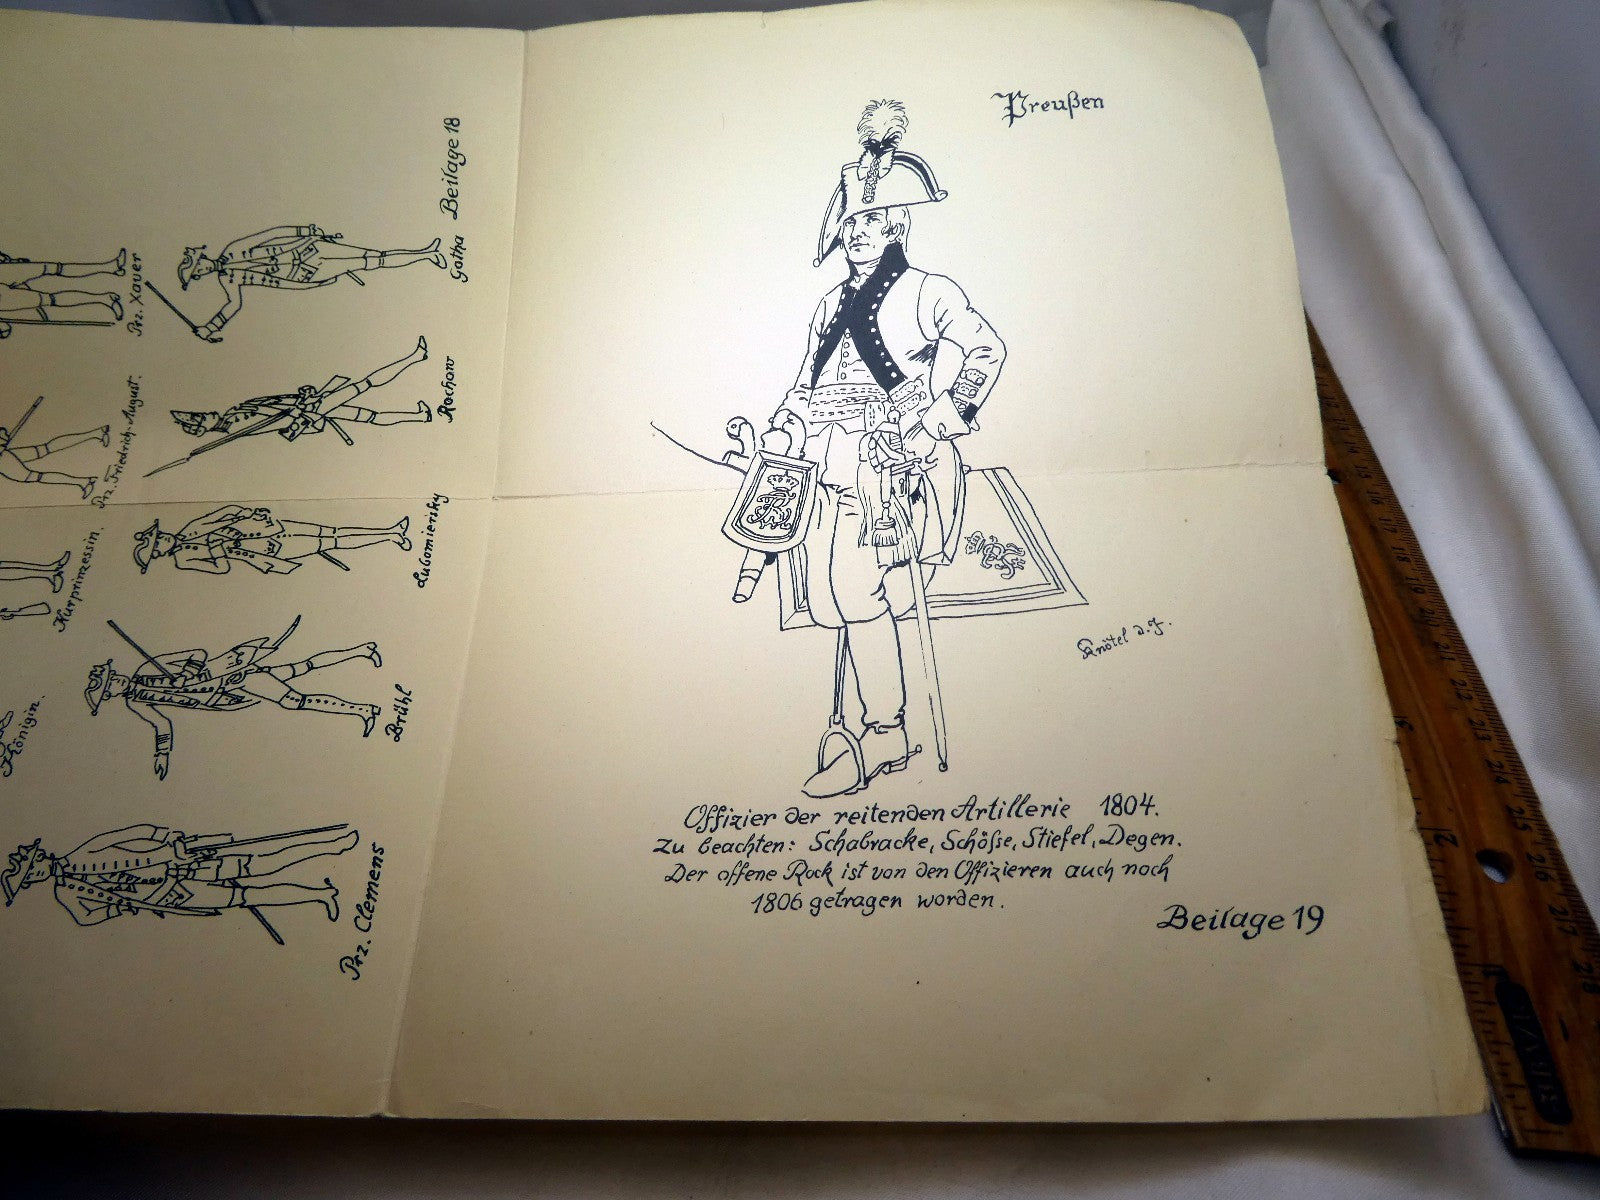 Beilage 18
Prz. Xaver
Gotha
Prz. Friedrich-August.
Rochow
Kurprinzessin.
Lubomiersky
Königin.
Brühl
Prz. Clemens
Preußen
Knötel d. J.
Offizier der reitenden Artillerie 1804.
Zu beachten: Schabracke, Schöße, Stiefel, Degen.
Der offene Rock ist von den Offizieren auch noch
1806 getragen worden.
Beilage 19